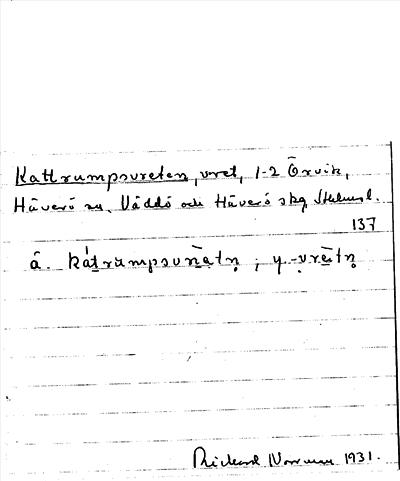 Kattrumpsvreten, vret, 1-2 Örvik,
Häverö sn, Väddö och Häverö skg Sthlms l.
137
ä. kátrumpsvrā̀tṇ ; y. -vrētṇ
Rickard 1931.